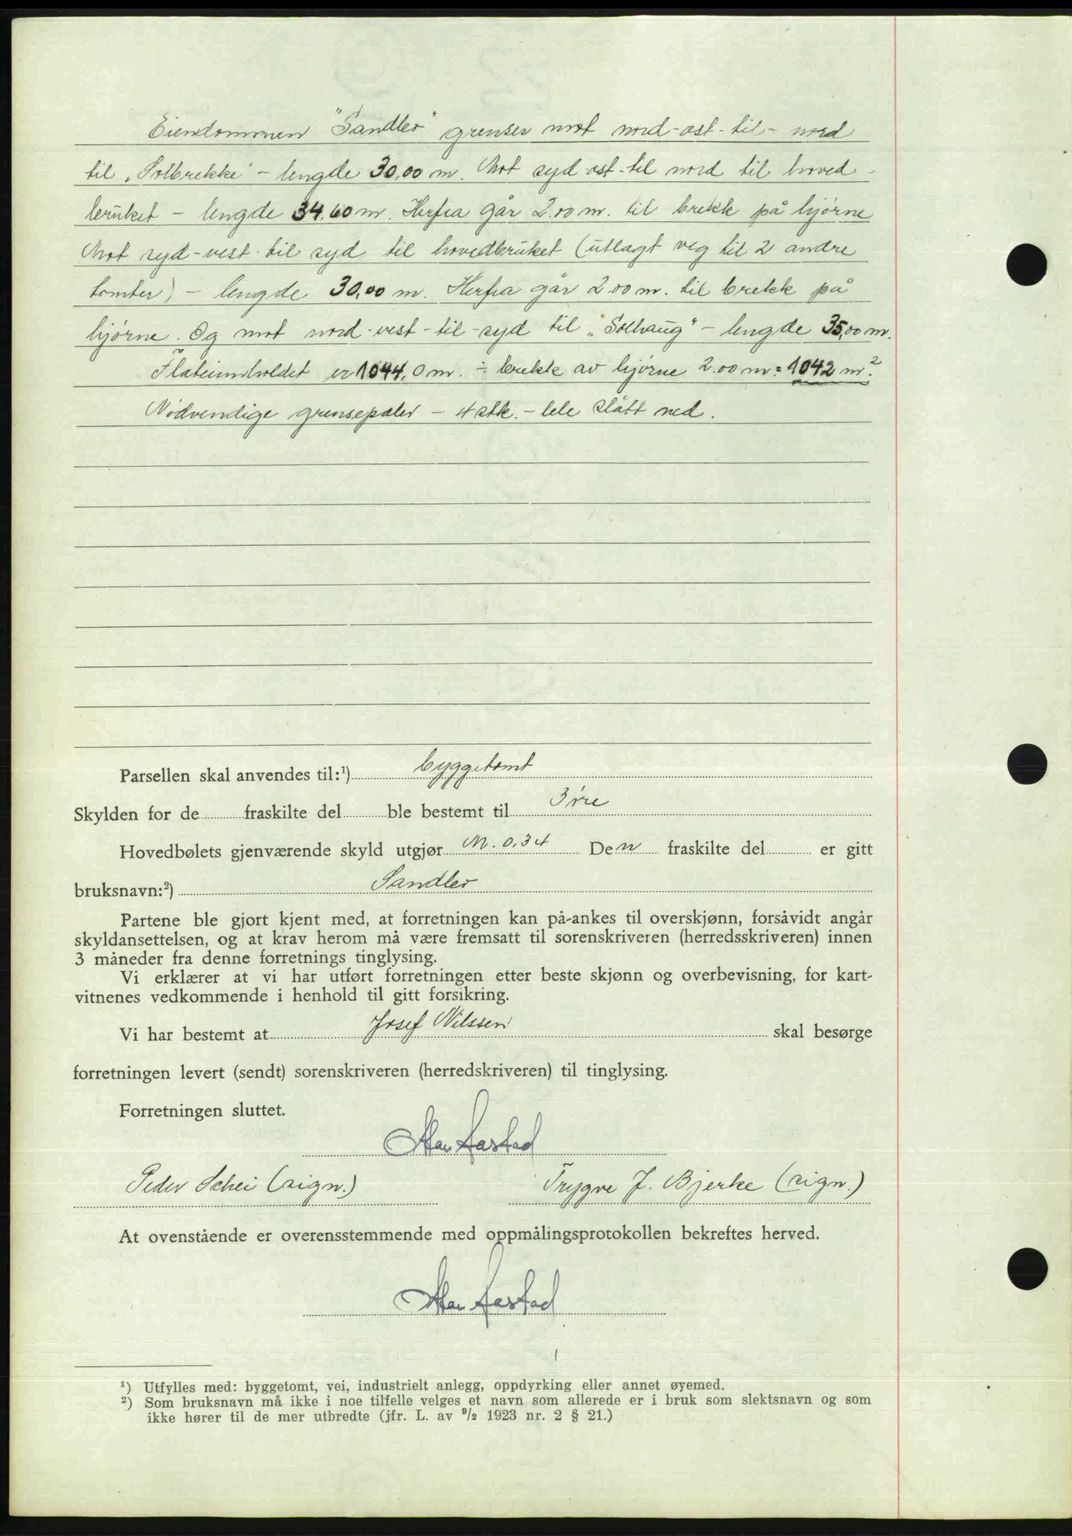 Eiendommen "Sandler" grenser mot nord-ost-til-nord
til "Solbrekke" - lengde 30,00 m. Mot syd-ost-til nord til hoved-
bruket - lengde 34.60 m. Herfra går 2.00 m. til brekk på hjørne
Mot syd-vest-til syd til hovedbruket (utlagt veg til 2 andre
tomter) - lengde 30,00 m. Herfra går 2.00 m. til brekk på
hjørne. Og mot nord-vest-til-syd til "Solhaug" - lengde 35,00 m.
Flateinnholdet er 1044,0 m. ÷ brekk av hjørne 2.00 m = 1042 m.²
Nødvendige grensepæler - 4 stk. - ble slått ned.
Parsellen skal anvendes til:¹) byggetomt
Skylden for de fraskilte del ble bestemt til 3 øre
Hovedbølets gjenværende skyld utgjør M. 0.34 Den fraskilte del er gitt
bruksnavn:²) Sandler
Partene ble gjort kjent med, at forretningen kan på-ankes til overskjønn, forsåvidt angår
skyldansettelsen, og at krav herom må være fremsatt til sorenskriveren (herredsskriveren) innen
3 måneder fra denne forretnings tinglysing.
Vi erklærer at vi har utført forretningen etter beste skjønn og overbevisning, for kart-
vitnenes vedkommende i henhold til gitt forsikring.
Vi har bestemt at Josef Nilssen skal besørge
forretningen levert (sendt) sorenskriveren (herredskriveren) til tinglysing.
Forretningen sluttet.
Aastad
Peder Schei (sign.) Trygve J. Bjerke (sign.)
At ovenstående er overensstemmende med oppmålingsprotokollen bekreftes herved.
Aastad
¹) Utfylles med: byggetomt, vei, industrielt anlegg, oppdyrking eller annet øyemed.
²) Som bruksnavn må ikke i noe tilfelle velges et navn som allerede er i bruk som slektsnavn og som
ikke hører til de mer utbredte (jfr. L. av ⁹/₂ 1923 nr. 2 § 21.)